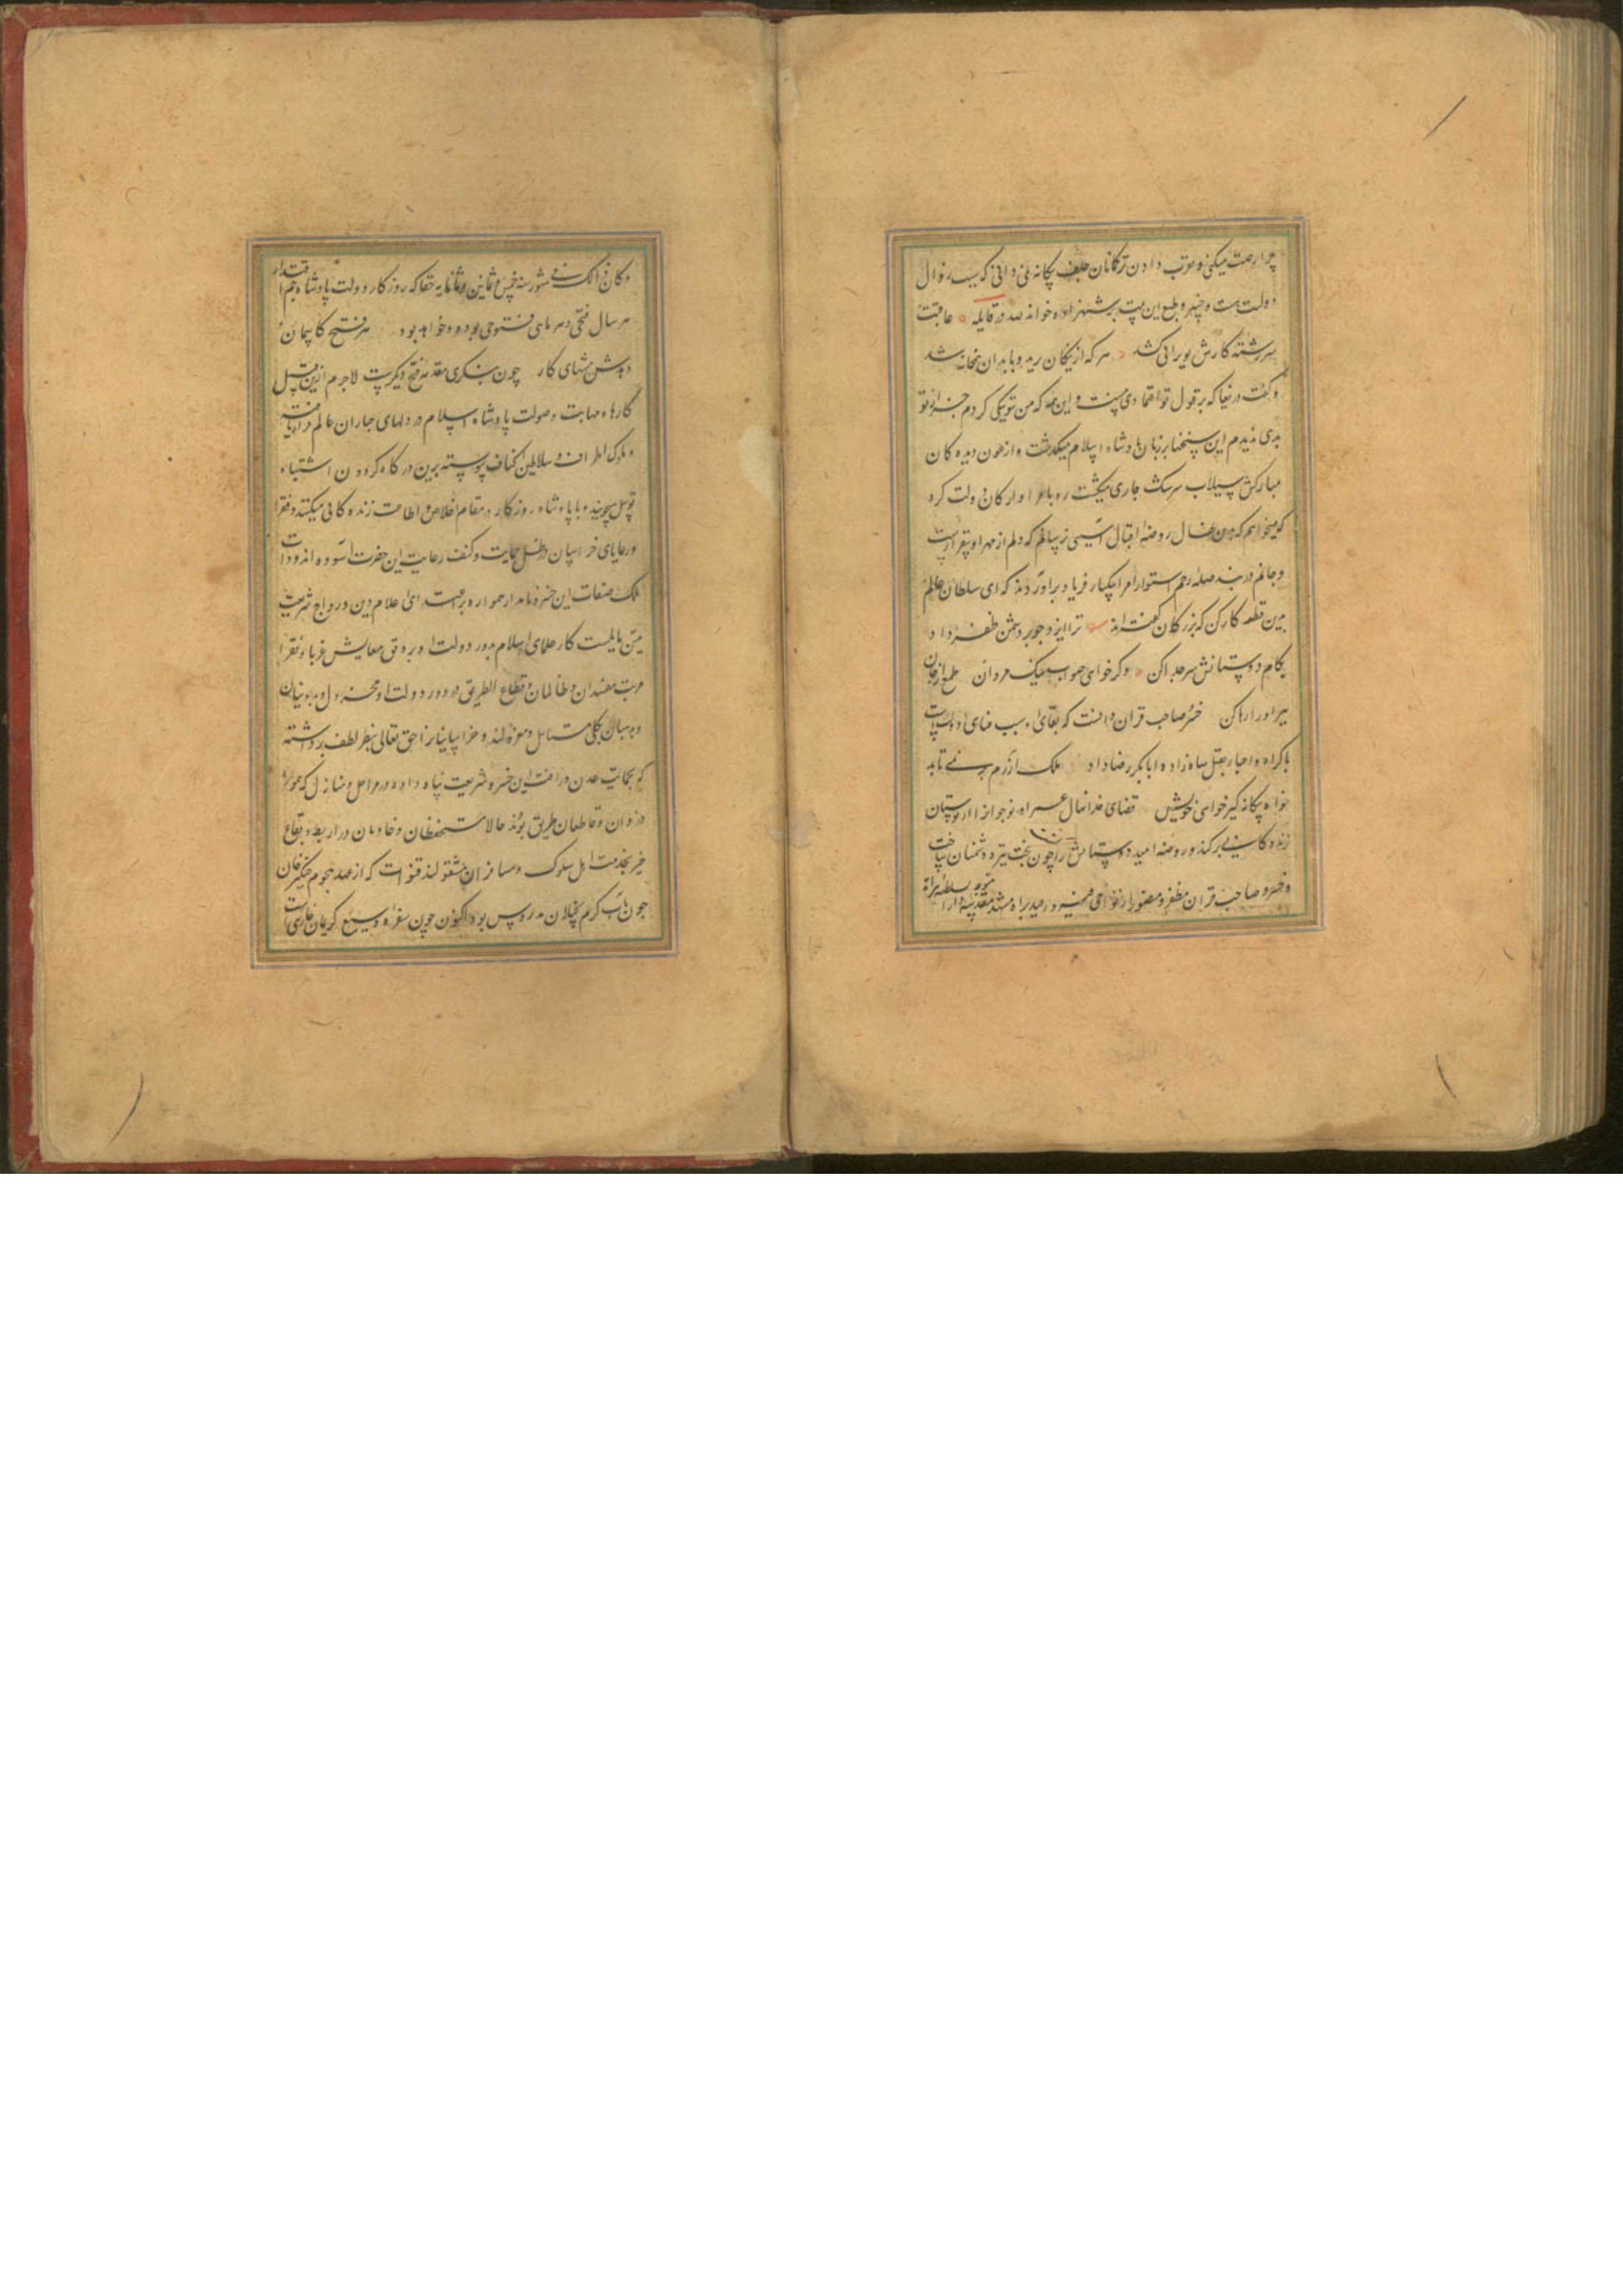 چرا رحمت میکنی و مرتب دادن ترکمانان جلف بیکانه نمی دانی که سبب زوال
دولت تست و چهر و طبع این بیت بر شهزاده خواند لله در قایله عاقبت
سررشته کارش بویرانی کشد هر که از نیکان رمید و با بدان همخانه شد
و گفت دریغا که بر قول تو اعتمادی نیست و این همه که من نیکی کردم جز از تو
بدی ندیدم این سخنها بر زبان پادشاه اسلام میگذشت و از عیون دیده کان
مبارکش سیلاب سرشک جاری میگشت رو بامرا و ارکان دولت کرد
که میخواهم که بدین نهال روضه اقبال آسیبی نرسانم که دلم از مهر او بیقرارست
و جانم در بند صله رحم استوار امرا بیکبار فریاد برآوردند که ای سلطان عالم
بدین قطعه کار کن که بزرکان گفته اند ترا ایزد چو بر دشمن ظفر داد
بکام دوستانش سر جدا کن وگر خواهی صواب نیک مردان طمع از جان
ببر او را رها کن خسرو صاحب قران دانست که بقای او سبب فنای دولت است
باکراه و اجبار بقتل شاه زاده ابابکر رضا داد ملک آزرم بر نمی تابد
خواه بیکانه گیر خواهی خویش قضای خدا نهال عمر آن نوجوان از بوستان
زنده کانی برکند و روضه امید دوستانش را چون بخت تیره دشمنان ساخت
و خسرو صاحب قران مظفر و منصور از نواحی فیروزه و رمید براه مشهد مقدسه
متوجه سلطنه هراة
و کان ذالک فی شهور سنه خمس و ثمانین و ثمانمایه حقا که روزکار دولت پادشاه جم اقتدار
هر سال فتحی و هر ماهی فتوحی بوده و خواهد بود هر فتح کاسمان
دهدش منتهای کار چون بنگری مقدمه فتح دیگرست لاجرم ازین قبیل
کارها و مهابت و صولت پادشاه اسلام در دلهای جباران عالم قرار یافته
و ملوک اطراف و سلاطین اکناف پیوسته برین درگاه گردون اشتباه
توسل میجویند و با پادشاه روزکار در مقام اخلاص و اطاعت زنده کانی میکنند و فقرا
و رعایای خراسان در ظل حمایت و کنف رعایت این حضرت آسوده اند و ذات
ملک صفات این خسرو نامدار همواره بر قصدای اعلام دین و رواج شریعت
متین مایلست کار علمای اسلام بدور دولت او برونق معایش غربا و فقرا
مرتب مفسدان و ظالمان و قطاع الطریق در دور دولت او مخذول و بدونیان
و بدسان بکلی مستاصل و معزول اند و خراسانیان را حق تعالی بنظر لطف برداشته
که بحمایت عدل و رافت این خسرو شریعت پناه داده در مراحل و منازل که همواره
دزدان و قاطعان طریق بودند حالا مستحفظان و خادمان در اربطه و بقاع
خیر بخدمت اهل سلوک و مسافران مشغولند قنوات که از عهد هجوم جنگیز خان
چون باب کرم بخیلان مدروس بود اکنون چون سفره وسیع کریمان جاریست